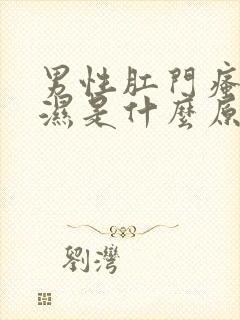 男性肛門瘙
濕是什麼原
劉灣